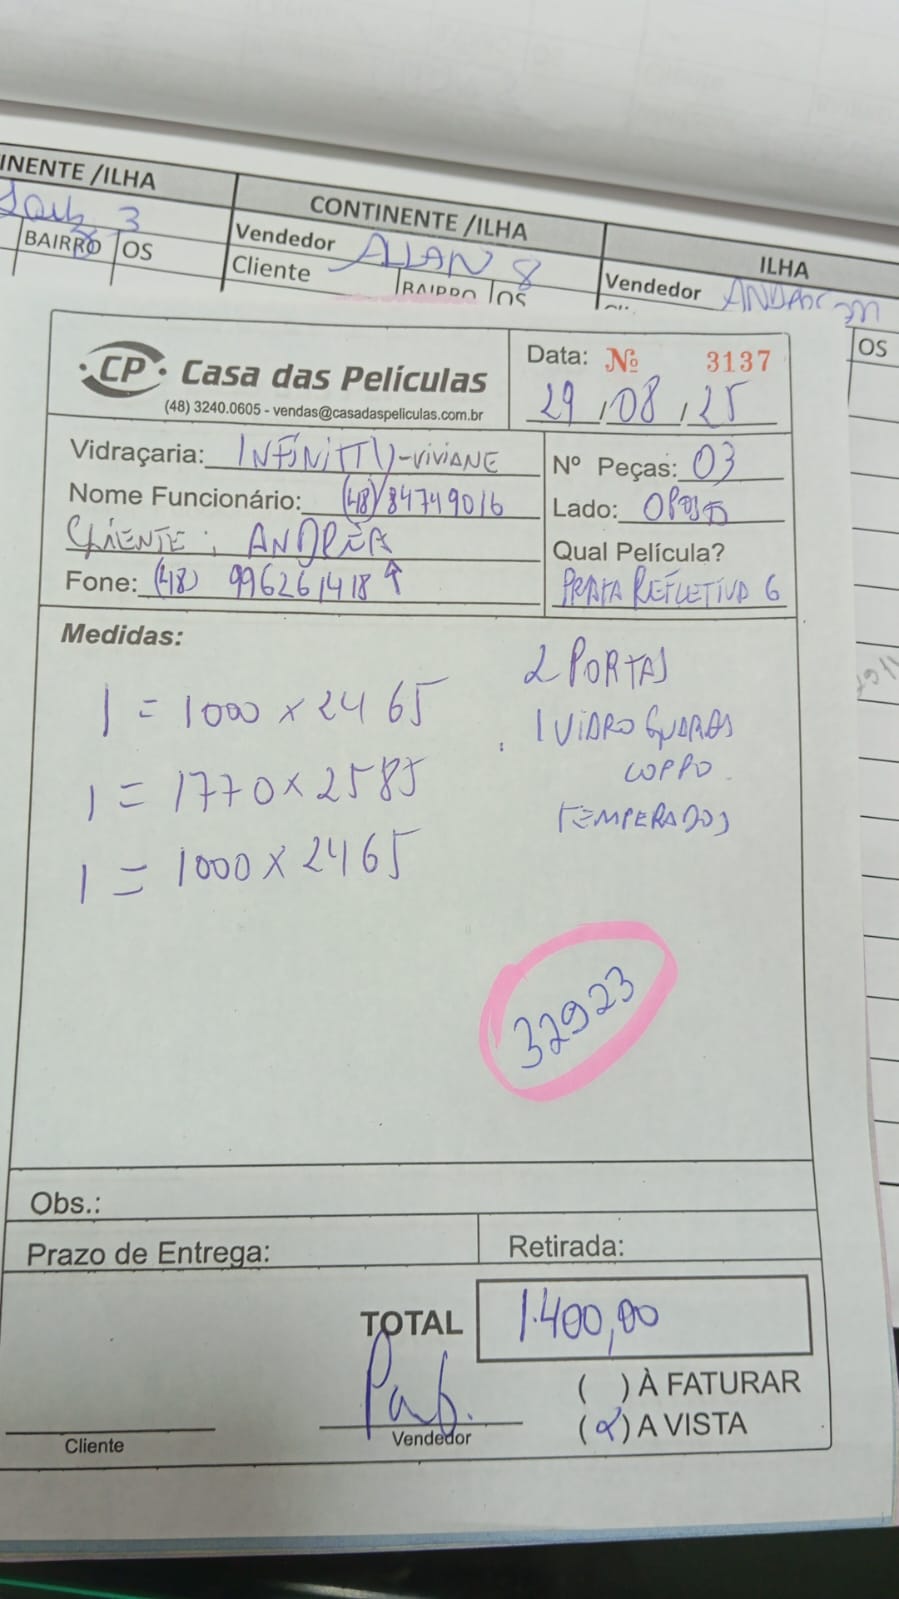 INENTE /ILHA
3
BAIRRO OS
CONTINENTE /ILHA
Vendedor ALLAN 8
Cliente
BAIRRO OS
ILHA
Vendedor
OS
CP Casa das Películas
(48) 3240.0605 - vendas@casadaspeliculas.com.br
Data: Nº 3137
29 / 08 / 25
Vidraçaria: INFINITTU-VIVIANE
Nome Funcionário: (48) 84749016
CLIENTE: ANDRÉA
Fone: (48) 996261418
Nº Peças: 03
Lado: OPOSTO
Qual Película?
PRATA REFLETIVA G
Medidas:
1 = 1000 x 2465
1 = 1770 x 2585
1 = 1000 x 2465
2 PORTAS
1 VIDRO GUARDA
CORPO
TEMPERADOS
32923
Obs.:
Prazo de Entrega:
Retirada:
TOTAL 1.400,00
( ) À FATURAR
(x) A VISTA
Cliente
Vendedor